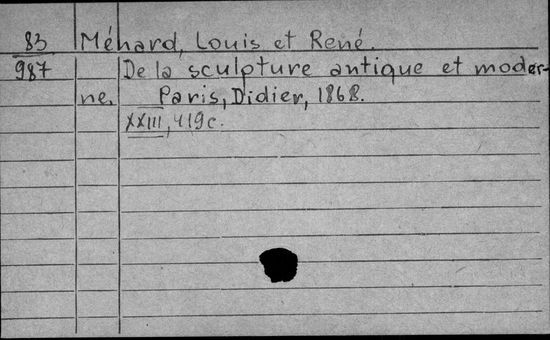 83 Ménard, Louis et René.
987 De la sculpture antique et moder-
ne. Paris, Didier, 1868.
XXIII, 419 c.